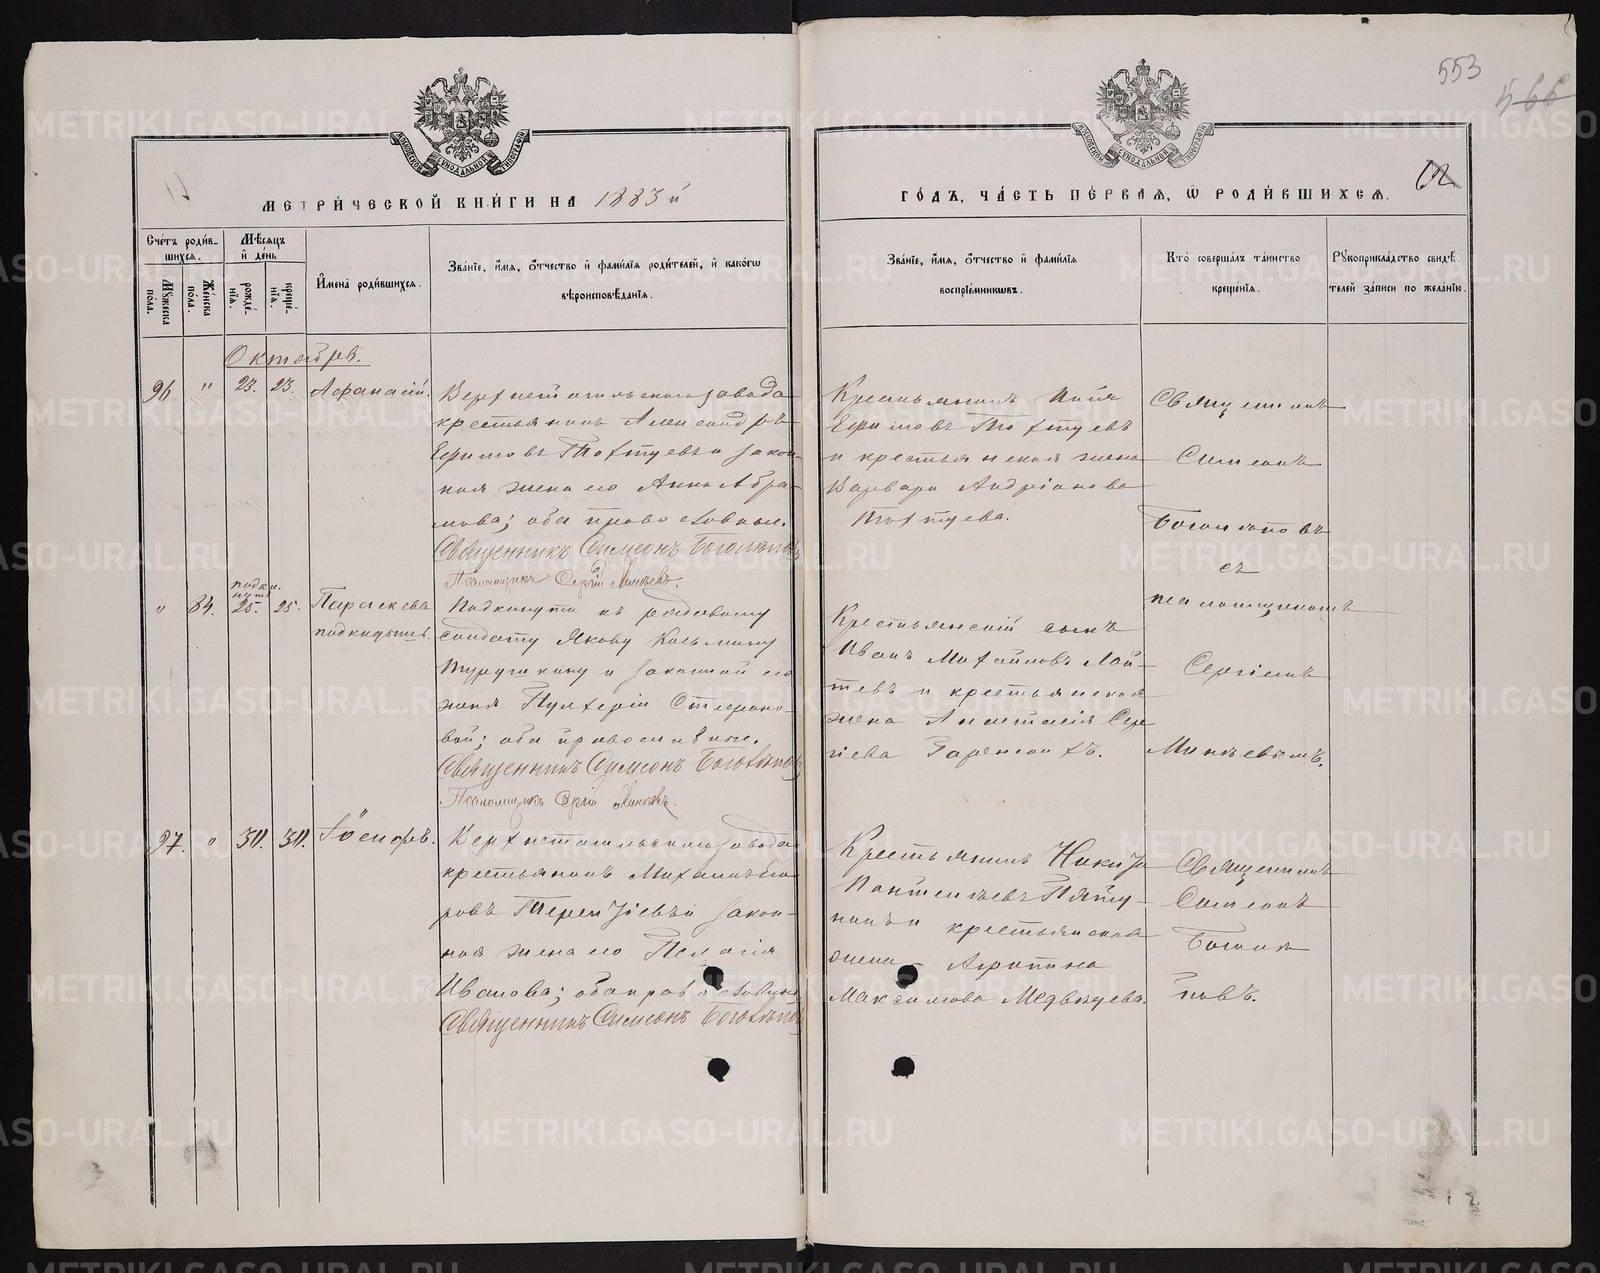 553
566
МЕТРИ́ЧЕСКОЙ КНИ́ГИ НА 1883 й
ГО́ДЪ, ЧА́СТЬ ПЕ́РВАЯ, Ѡ РОДИ́ВШИХСЯ.
Сче́тъ роди́в-
шихся.
Мꙋжеска
пола.
Же́нска
пола.
Мѣ́сяцъ
и҆ де́нь
рожде́-
нїя.
креще́-
нїя.
И҆мена̀ роди́вшихся.
Зва́нїе, и҆́мя, ѻ҆́тчество и҆ фами́лїя роди́телей, и҆ како́гѡ
вѣроисповѣ́данїя.
Зва́нїе, и҆́мя, ѻ҆́тчество и҆ фами́лїя
воспрїе́мникѡвъ.
Кто̀ соверша́лъ та́инство
креще́нїя.
Рꙋкоприкла́дство свидѣ́-
телей за́писи по жела́нїю.
Октябрь.
96 " 23. 23. Аѳанасій.
Верхнетагильскаго завода
крестьянинъ Александръ
Ефимовъ Тохтуевъ и закон-
ная жена его Анна Абра-
мова; оба православные.
Священникъ Симеонъ Боголѣповъ
Псаломщикъ Сергій
Крестьянинъ Илья
Ефимовъ Тохтуевъ
и крестьянская жена
Варвара Андріанова
Тохтуева.
Священникъ
Симеонъ
Боголѣповъ
съ
псаломщикомъ
Сергіемъ
" 84. подки.
нут.
25. 25. Параскева
подкидышъ.
Подкинута къ рядовому
солдату Якову Козьмину
и законной его
женѣ Пульхеріи Стефано-
вой; оба православные.
Священникъ Симеонъ Боголѣповъ
Псаломщикъ Сергій
Крестьянскій сынъ
Иванъ Михайловъ Лап-
тевъ и крестьянская
жена Анастасія Сер-
гіева
97. " 30. 30. Іосифъ.
Верхнетагильскаго завода
крестьянинъ Михаилъ
Терентіевъ и закон-
ная жена его Пелагія
Иванова; оба православные
Священникъ Симеонъ Боголѣповъ
Крестьянинъ Никита
и крестьянская
жена Агрипина
Максимова Медвѣдева.
Священникъ
Симеонъ
Боголѣ-
повъ.